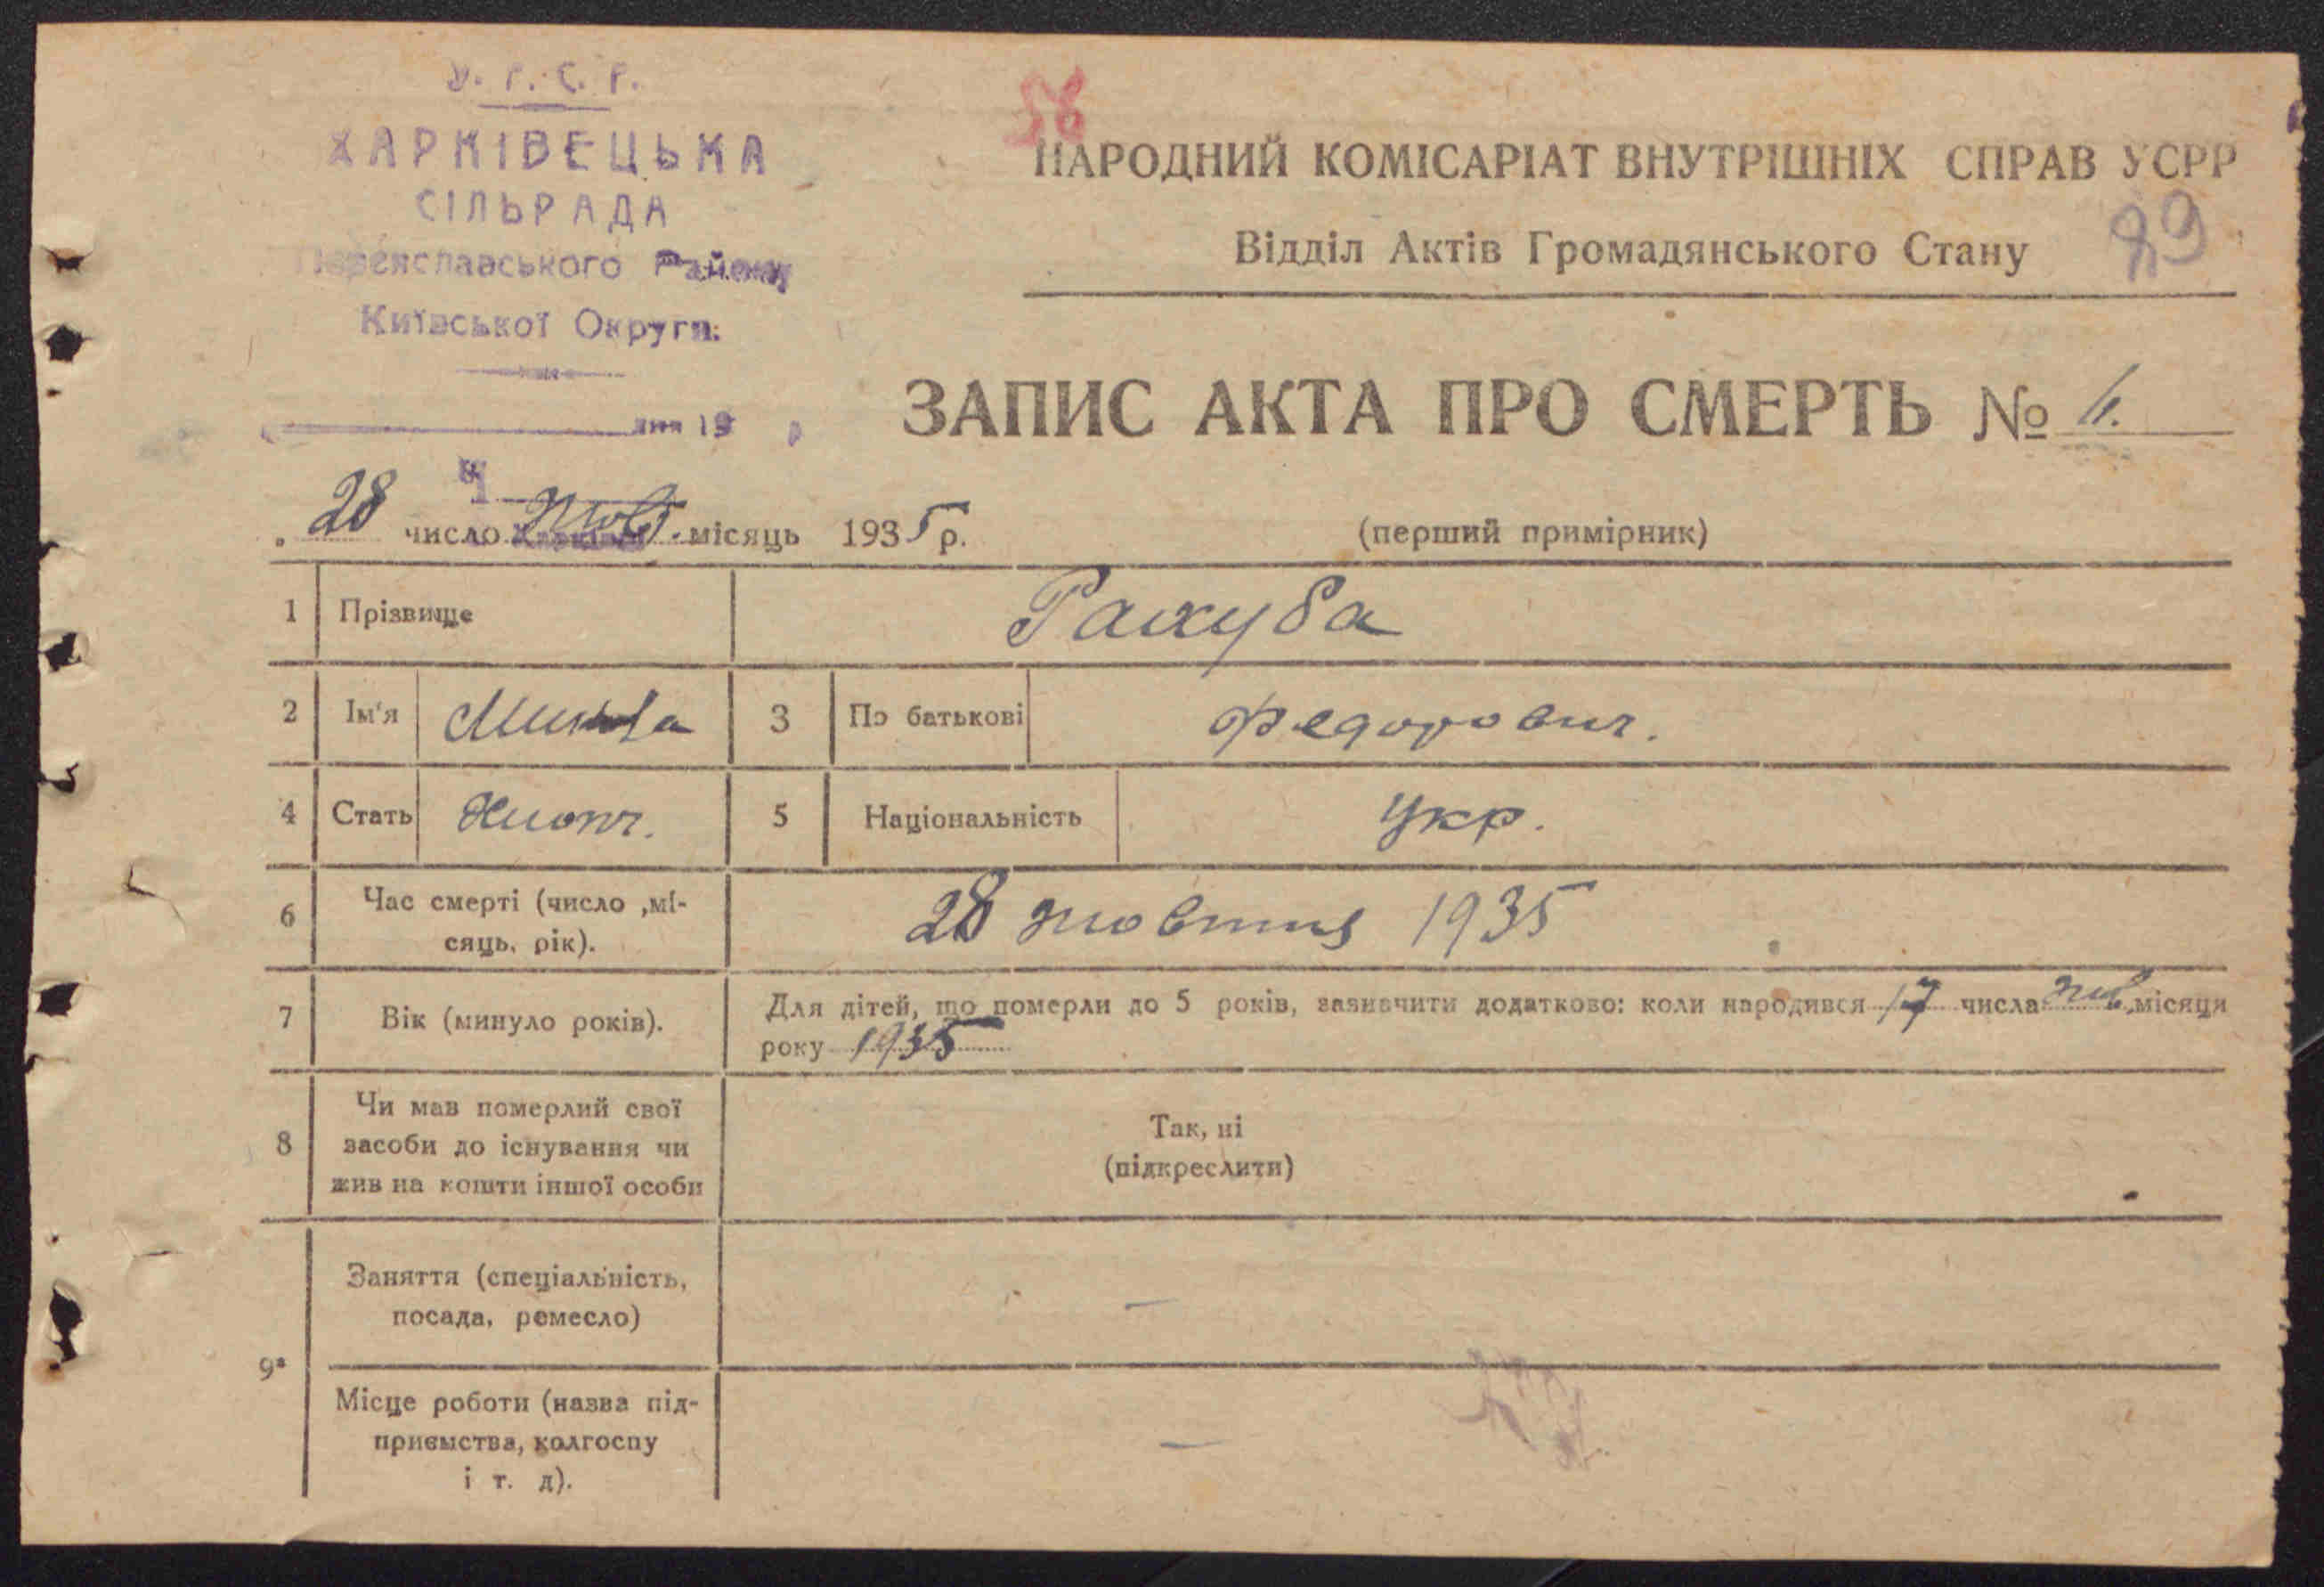 У. Р. С. Р.
ХАРКІВЕЦЬКА
СІЛЬРАДА
Переяславського Району
Київської Округи.
дня 19 р
58
НАРОДНИЙ КОМІСАРІАТ ВНУТРІШНІХ СПРАВ УСРР
Відділ Актів Громадянського Стану
89
ЗАПИС АКТА ПРО СМЕРТЬ №
28 число жовт. місяць 1935 р.
(перший примірник)
1 Прізвище Рахуба
2 Ім'я Микола 3 По батькові Федорович.
4 Стать Хлопч. 5 Національність Укр.
6 Час смерті (число ,мі-
сяць, рік). 28 жовтня 1935
7 Вік (минуло років). Для дітей, що померли до 5 років, зазначити додатково: коли народився 17 числа жов. місяця
року 1935
8 Чи мав померлий свої
засоби до існування чи
жив на кошти іншої особи
Так, ні
(підкреслити)
9а Заняття (спеціальність,
посада, ремесло) —
Місце роботи (назва під-
приємства, колгоспу
і т. д). —